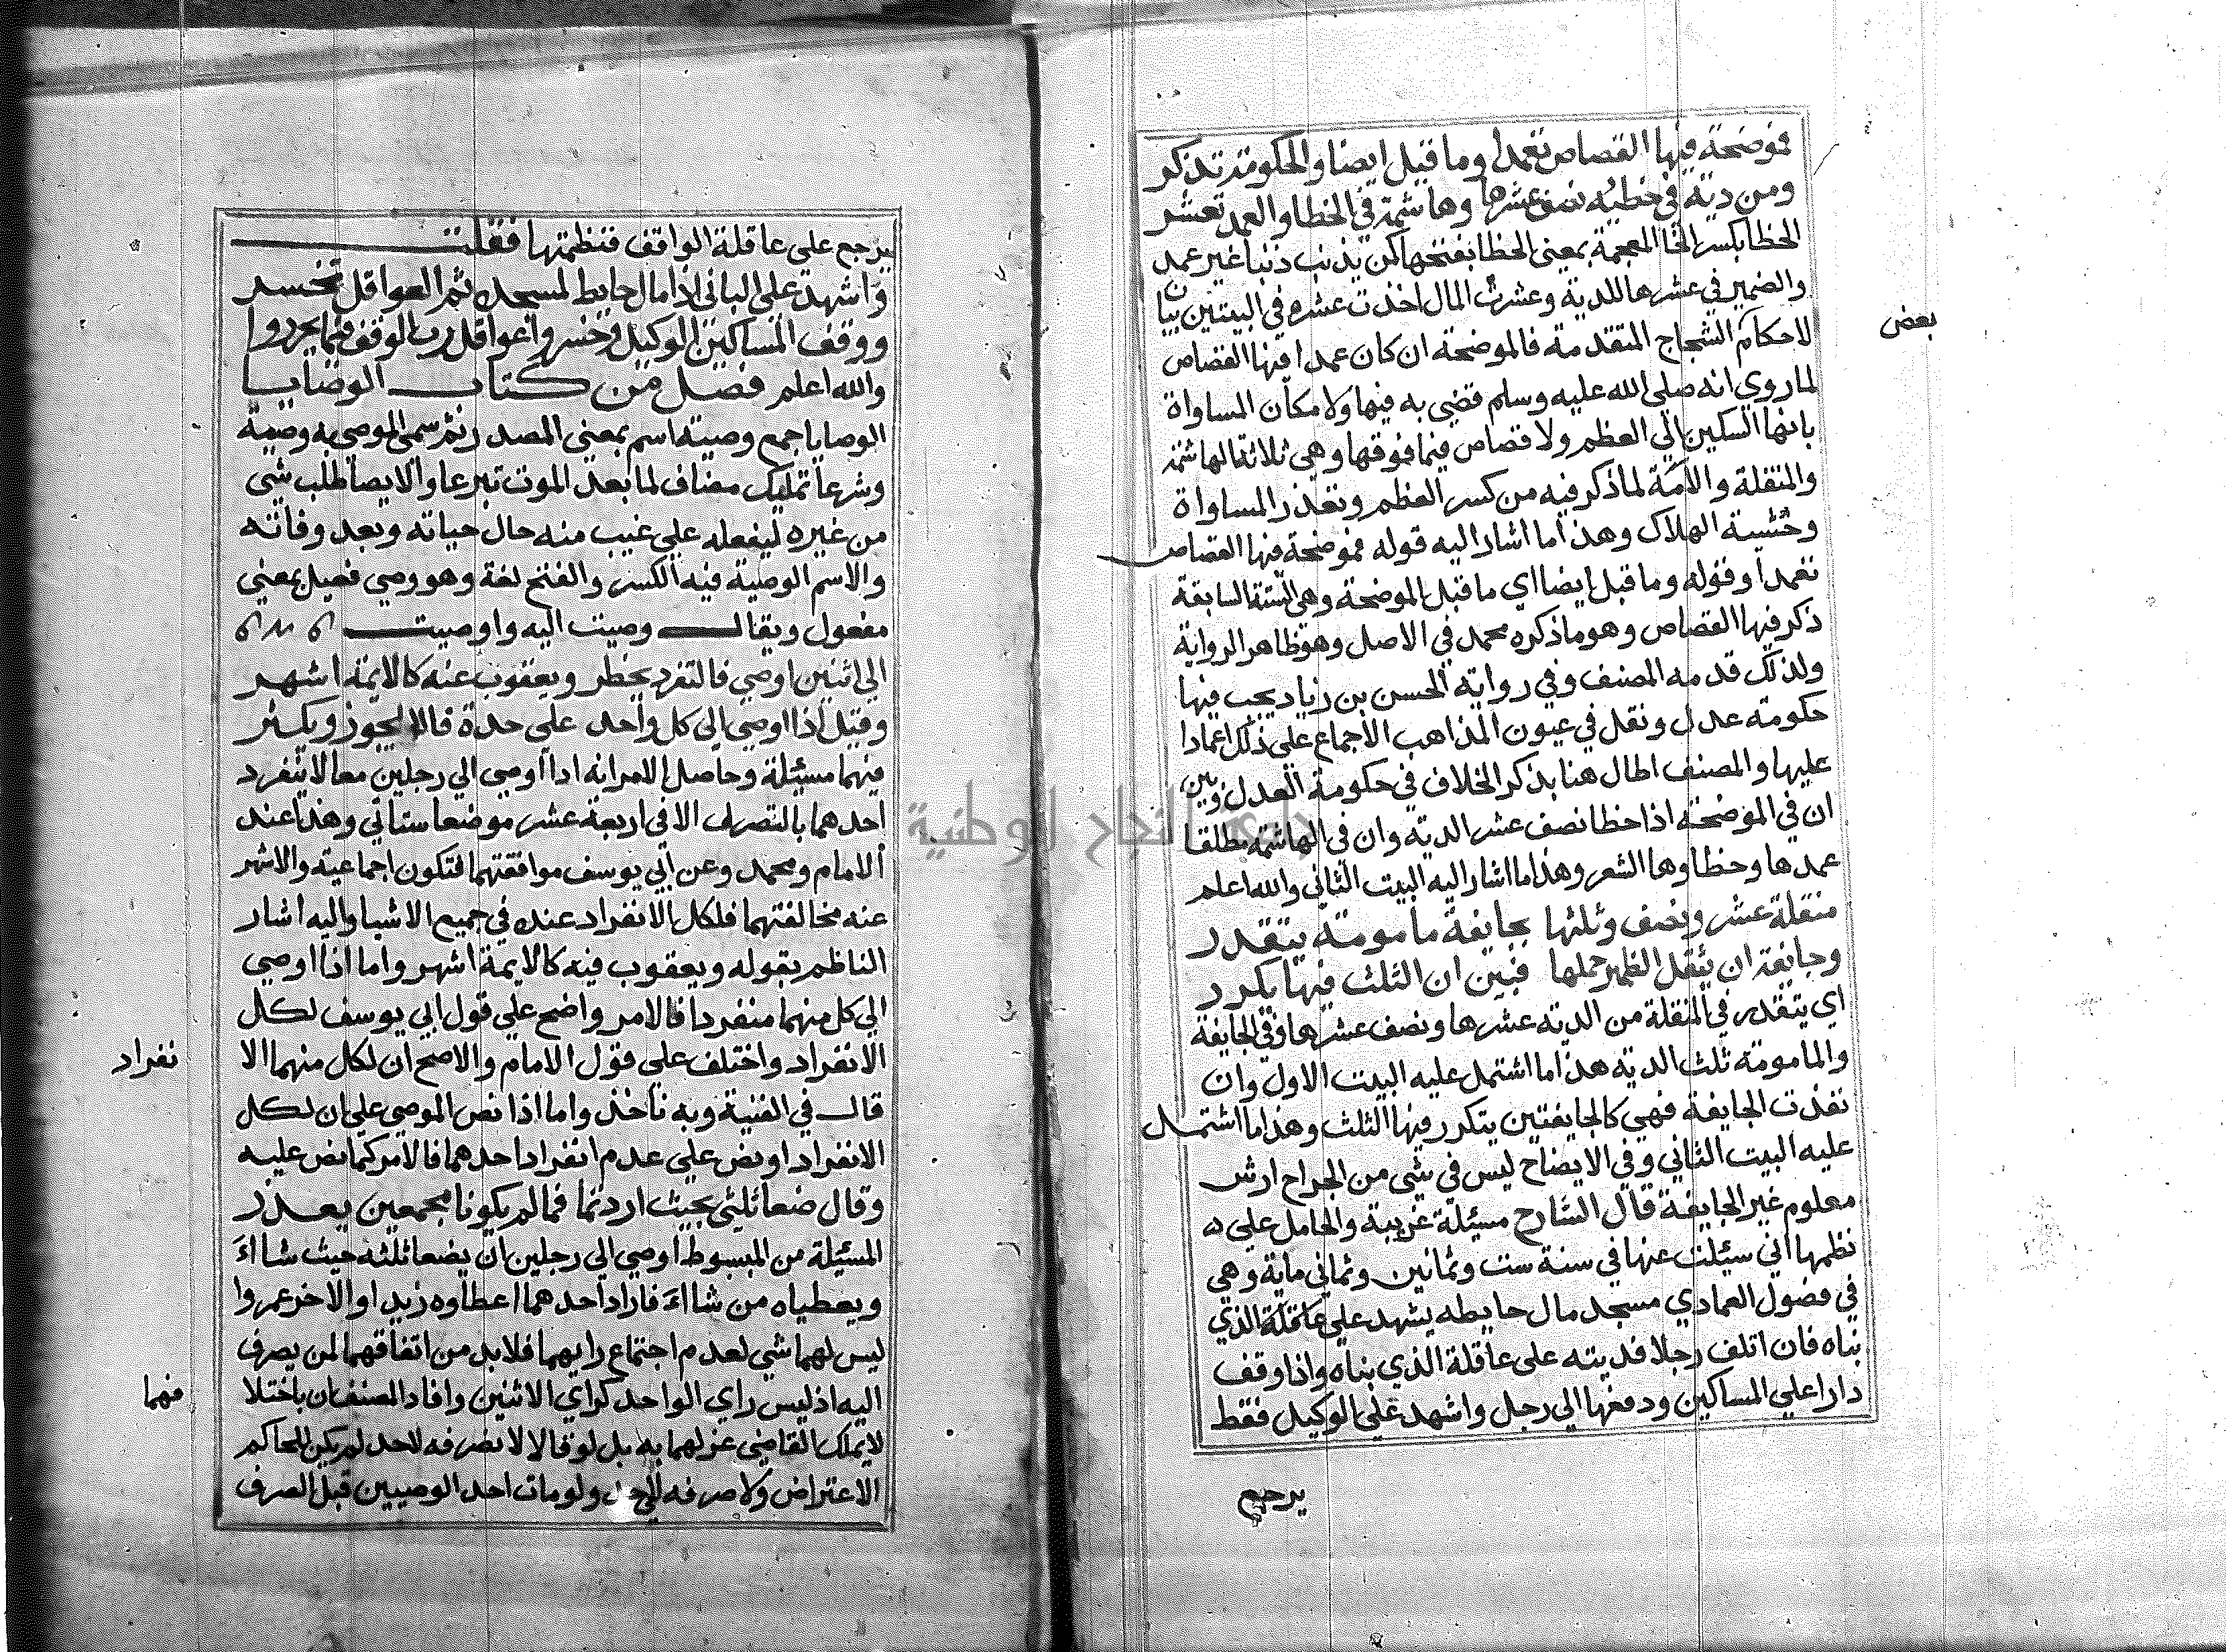 فموضحة فيها القصاص تعمدا وما قبل ايضا والحكومة تذكر
ومن دية في خطئه نصف عشرها وهاشمة في الخطا والعمد تعشر
الخطا بكسر الخا المعجمة بمعنى الخطا بفتحها كمن يذنب ذنبا غير عمد
والضمير في عشرها للدية وعشرت المال اخذت عشره في البيتين بيان
بعض
لاحكام الشجاج المتقدمة فالموضحة ان كان عمدا فيها القصاص
لما روي انه صلى الله عليه وسلم قضي به فيها ولامكان المساواة
بانها السكين الي العظم ولا قصاص فيما فوقها وهي ثلاثة الهاشمة
والمنقلة والآمة لما ذكر فيه من كسر العظم وتعذر المساواة
وخشية الهلاك وهذا ما اشار اليه قوله فموضحة فيها القصاص
تعمدا وقوله وما قبل ايضا اي ما قبل الموضحة وهي الستة السابقة
ذكر فيها القصاص وهو ما ذكره محمد في الاصل وهو ظاهر الرواية
ولذلك قدمه المصنف وفي رواية الحسن بن زياد يجب فيها
حكومة عدل ونقل في عيون المذاهب الاجماع على ذلك اعتمادا
عليها والمصنف اطال هنا بذكر الخلاف في حكومة العدل وبين
ان في الموضحة اذا خطا نصف عشر الدية وان في الهاشمة مطلقا
عمدها وخطاوها الشعر وهذا ما اشار اليه البيت الثاني والله اعلم
منقلة عشر ونصف وثلثها بجايفة مامومة يتقدر
وجايفة ان ينقل الظهر حملها فبين ان الثلث فيها يكرر
اي يتقدر في المنقلة من الدية عشرها ونصف عشرها وفي الجايفة
والمامومة ثلث الدية هذا ما اشتمل عليه البيت الاول وان
نفذت الجايفة فهي كالجايفتين يتكرر فيها الثلث وهذا ما اشتمل
عليه البيت الثاني وفي الايضاح ليس في شي من الجراح ارش
معلوم غير الجايفة قال الشارح مسيئلة غريبة والحامل علي
نظمها اني سيئلت عنها في سنة ست وثمانين وثماني ماية وهي
في فصول العمادي مسجد مال حايطه يشهد علي عاقلة الذي
بناه فان اتلف رجلا فديته على عاقلة الذي بناه واذا وقف
دارا علي المساكين ودفعها الي رجل واشهد على الوكيل فقط
يرجع
يرجع على عاقلة الواقف فنظمتها فقلت
واشهد على الباني اذا مال حايط لمسجده ثم العواقل تخسر
ووقف المساكين الوكيل وخسروا عواقل رب الوقف فيما يحرروا
والله اعلم فصل من كتاب الوصايا
الوصايا جمع وصية اسم بمعنى المصدر ثم سمي الموصي به وصية
وشرعا تمليك مضاف لما بعد الموت تبرعا والايصا طلب شي
من غيره ليفعله علي غيب منه حال حياته وبعد وفاته
والاسم الوصية فيه الكسر والفتح لغة وهو وصي فعيل بمعني
مفعول ويقال وصيت اليه واوصيت
الي اثنين اوصي فالتفرد يحظر ويعقوب عنه كالايمة اشهر
وقيل اذا اوصي الي كل واحد علي حدة قالا يجوز ويكثر
فيهما مسيئلة وحاصل الامر انه اذا اوصي الي رجلين معا لا يتفرد
احدهما بالتصرف الا في اربعة عشر موضعا ستاتي وهذا عند
الامام ومحمد وعن ابي يوسف موافقتهما فتكون اجماعية والاشهر
عنه مخالفتهما فلكل الانفراد عنده في جميع الاشيا واليه اشار
الناظم بقوله ويعقوب فيه كالايمة اشهر واما اذا اوصي
الي كل منهما منفردا فالامر واضح علي قول ابي يوسف لكل
الانفراد واختلف على قول الامام والاصح ان لكل منهما الا
نفراد
قال في القنية وبه ناخذ واما اذا نص الموصي علي ان لكل
الانفراد او نص علي عدم انفراد احدهما فالامر كما نص عليه
وقال ضعا ثلثي بحيث اردتما فما لم يكونا مجمعين يعذر
المسيئلة من المبسوط اوصي الي رجلين ان يضعا ثلثه حيث شاأ
ويعطياه من شاأ فاراد احدهما اعطاوه زيد او الاخر عمروا
ليس لهما شي لعدم اجتماع رايهما فلا بد من اتفاقهما لمن يصرف
اليه اذ ليس راي الواحد كراي الاثنين وافاد المصنف ان باختلا
فهما
لا يملك القاضي عزلهما به بل لو قالا لا نصرفه لاحد لم يكن للحاكم
الاعتراض ولا صرفه ولو مات احد الوصيين قبل الصرف
جامعة النجاح الوطنية